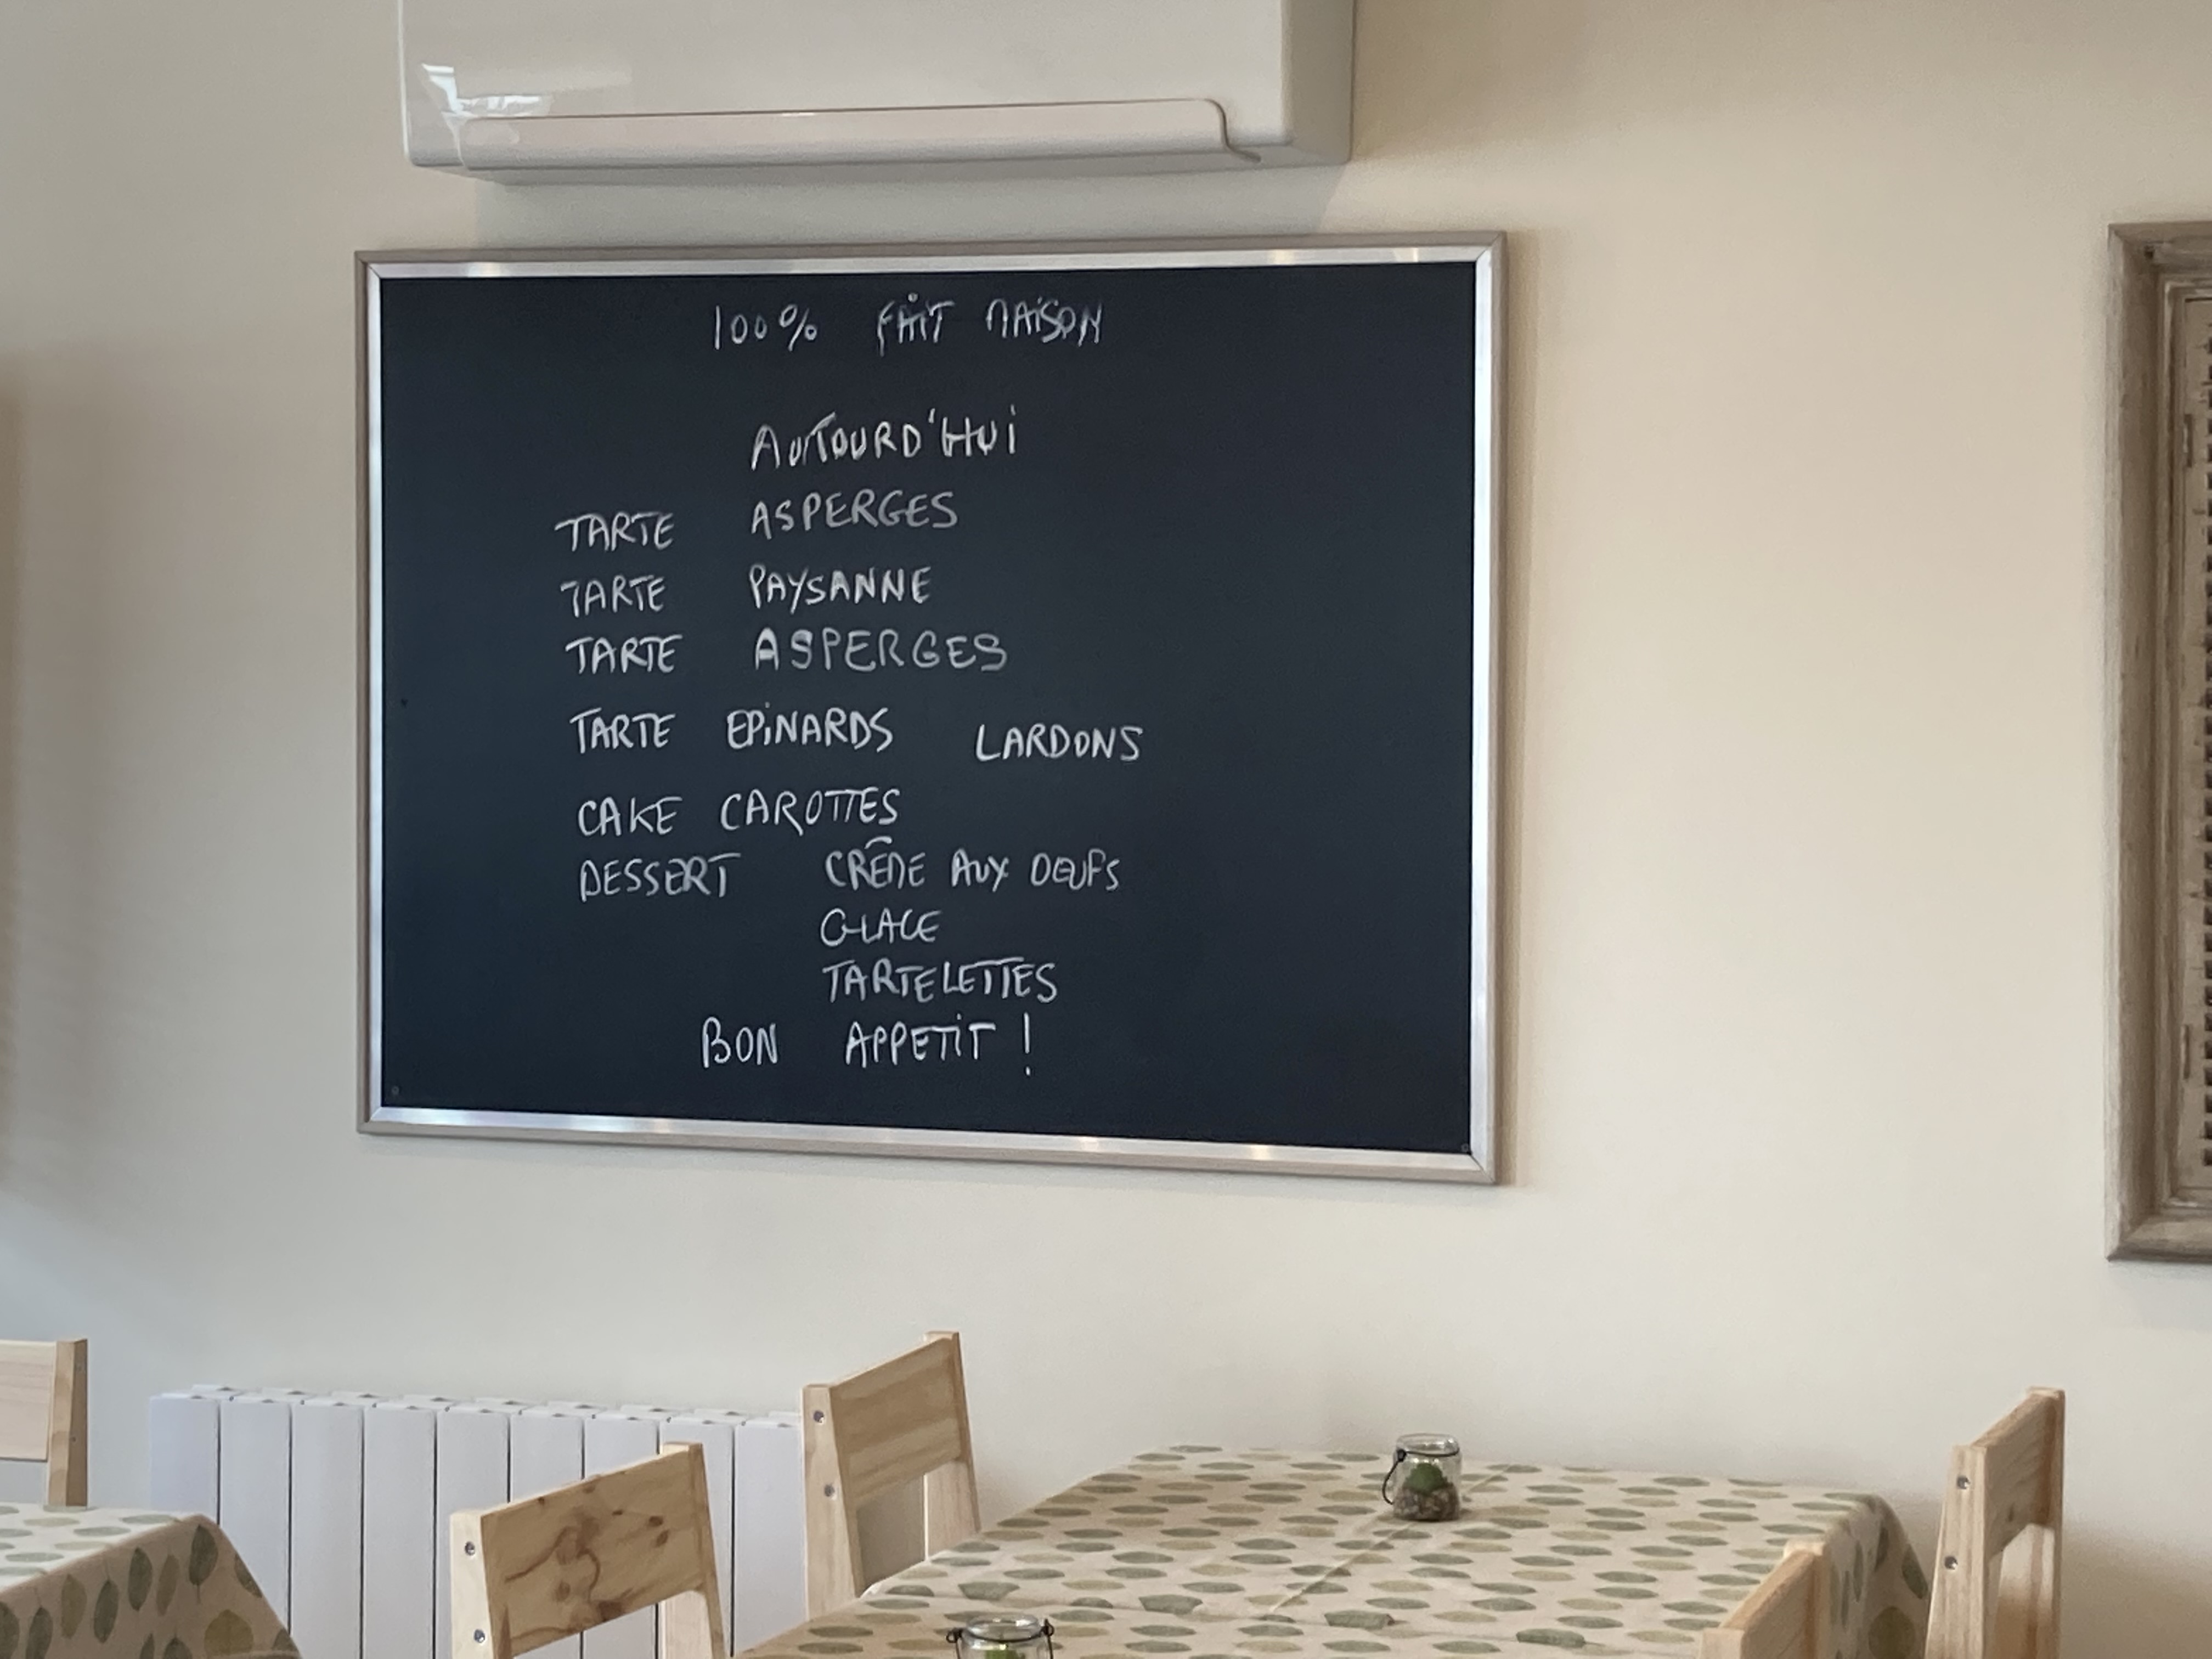 100% FAIT MAISON
AUJOURD'HUI
TARTE ASPERGES
TARTE PAYSANNE
TARTE ASPERGES
TARTE EPINARDS LARDONS
CAKE CAROTTES
DESSERT CRÊME AUX OEUFS
GLACE
TARTELETTES
BON APPETIT !